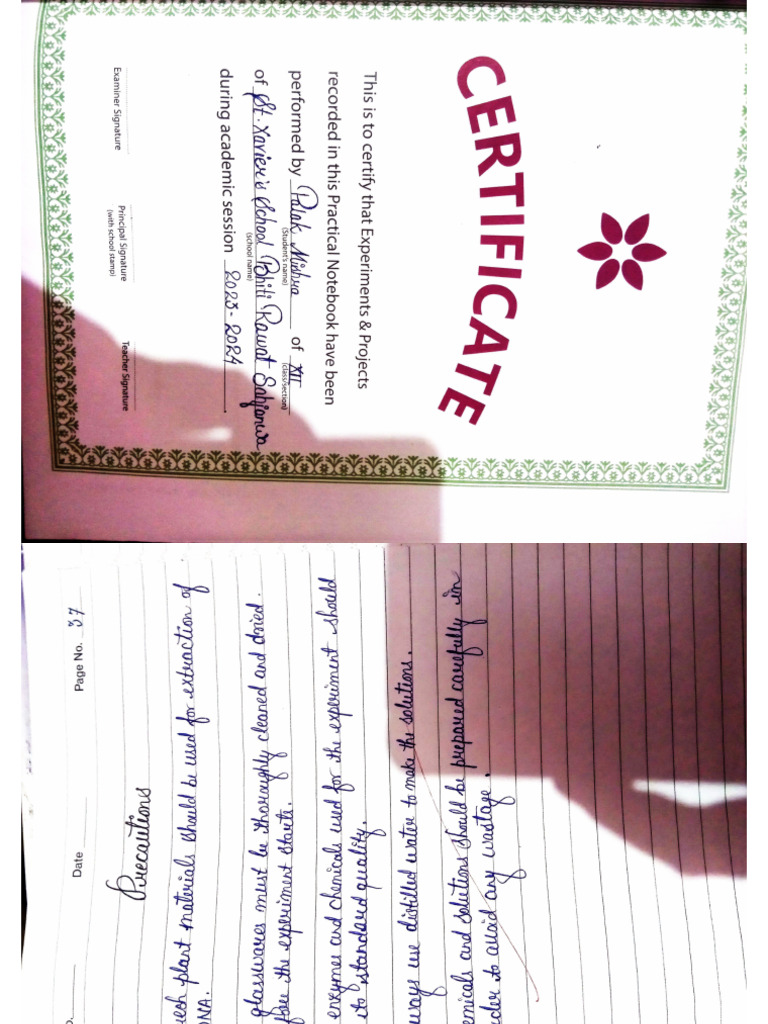 CERTIFICATE
This is to certify that Experiments & Projects
recorded in this Practical Notebook have been
performed by Palak Mishra of XII
(Student's name) (class/section)
of St. Xavier's School Bhiti Rawat Sahjanwa
(school name)
during academic session 2023-2024.
Examiner Signature Principal Signature Teacher Signature
(with school stamp)
Date Page No. 37
Precautions
plant materials should be used for extraction of
DNA.
glasswares must be thoroughly cleaned and dried.
the experiment starts.
enzymes and chemicals used for the experiment should
standard quality.
ways use distilled water to make the solutions.
emicals and solutions should be prepared carefully in
der to avoid any wastage.